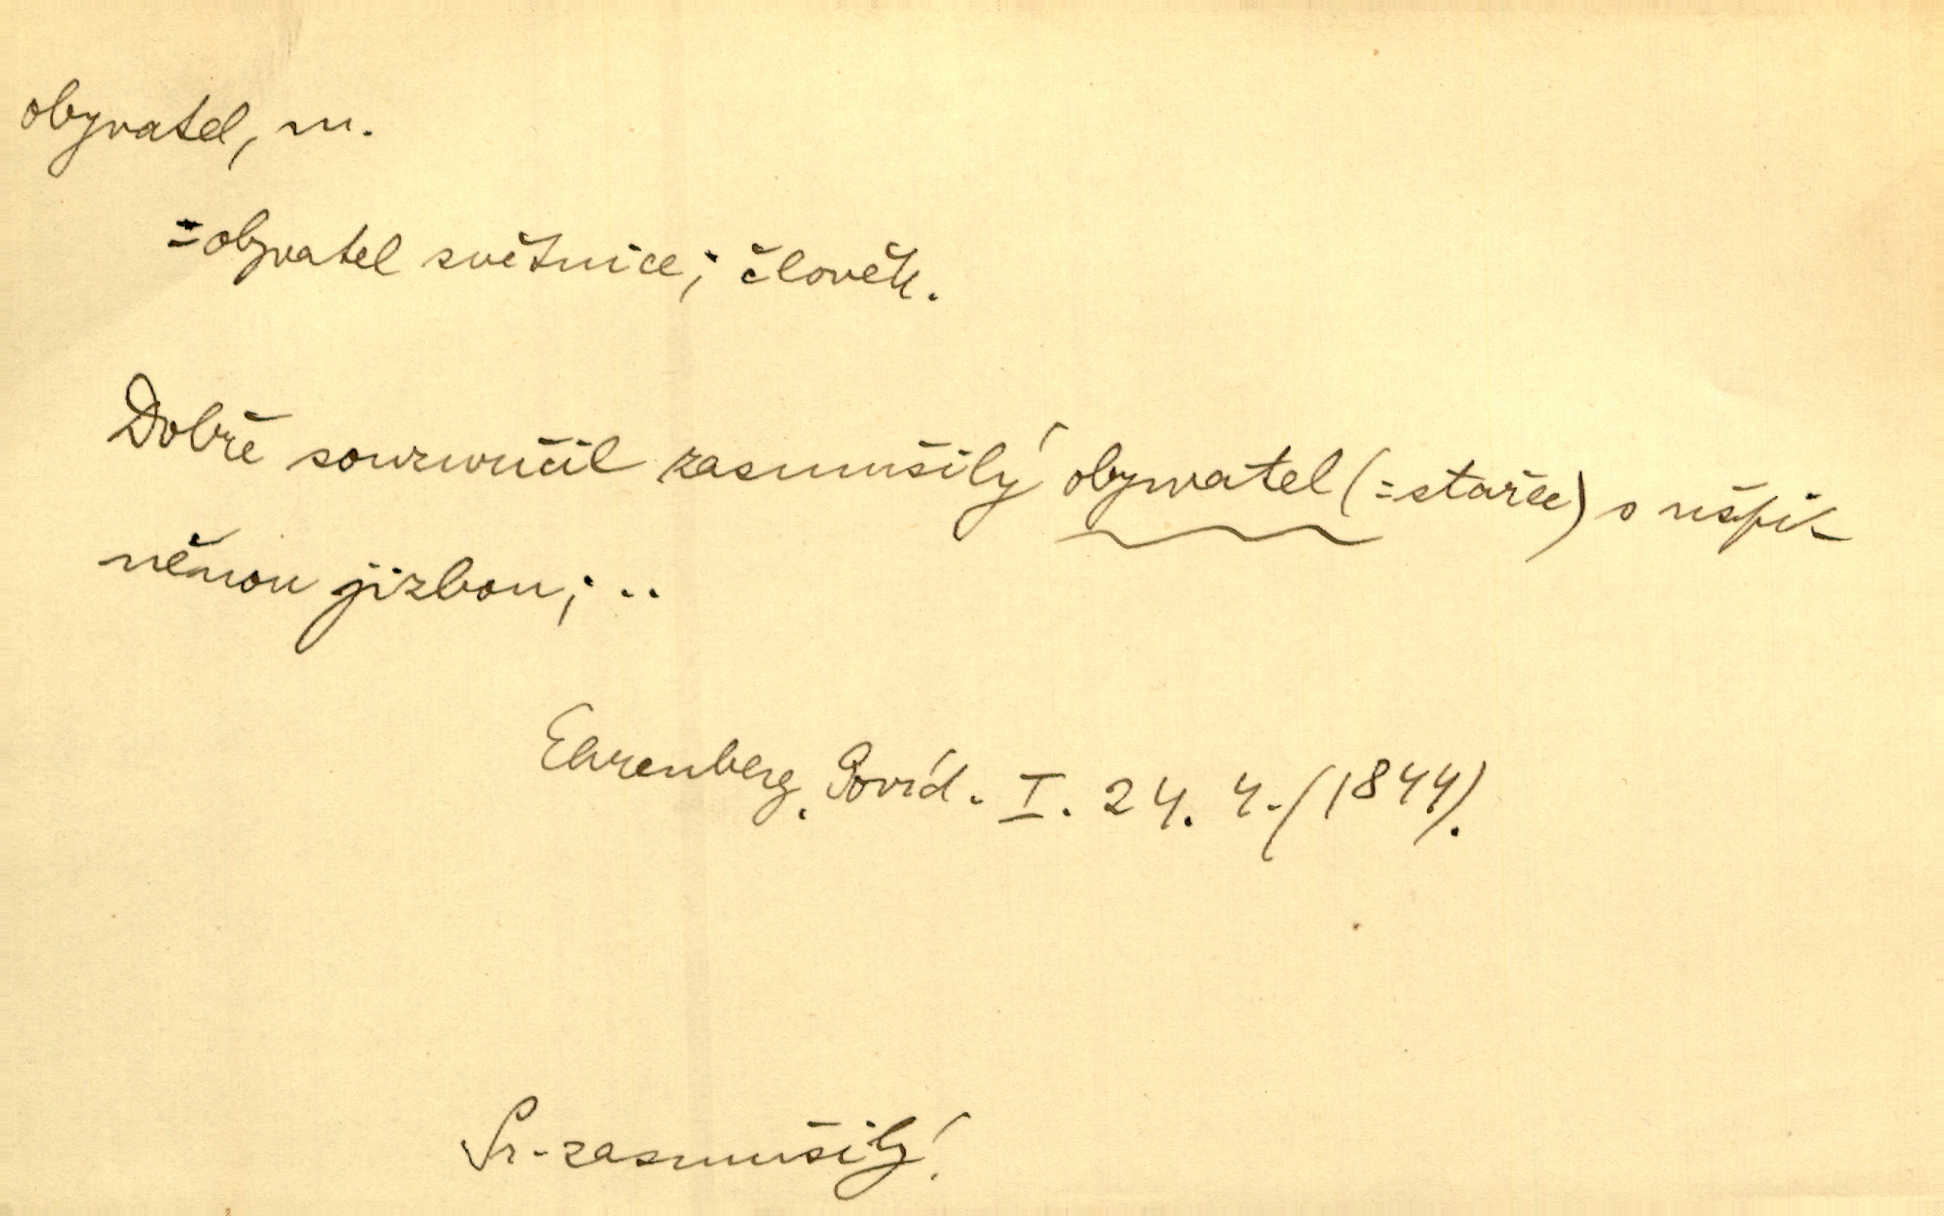 obyvatel, m.
=obyvatel světnice; člověk.
Dobře souzvučil zasmušilý obyvatel (=stařec) s ušpi-
něnou jizbou; ..
Ehrenberg, Povíd. I. 24. 4. (1844).
Sr. zasmušilý.